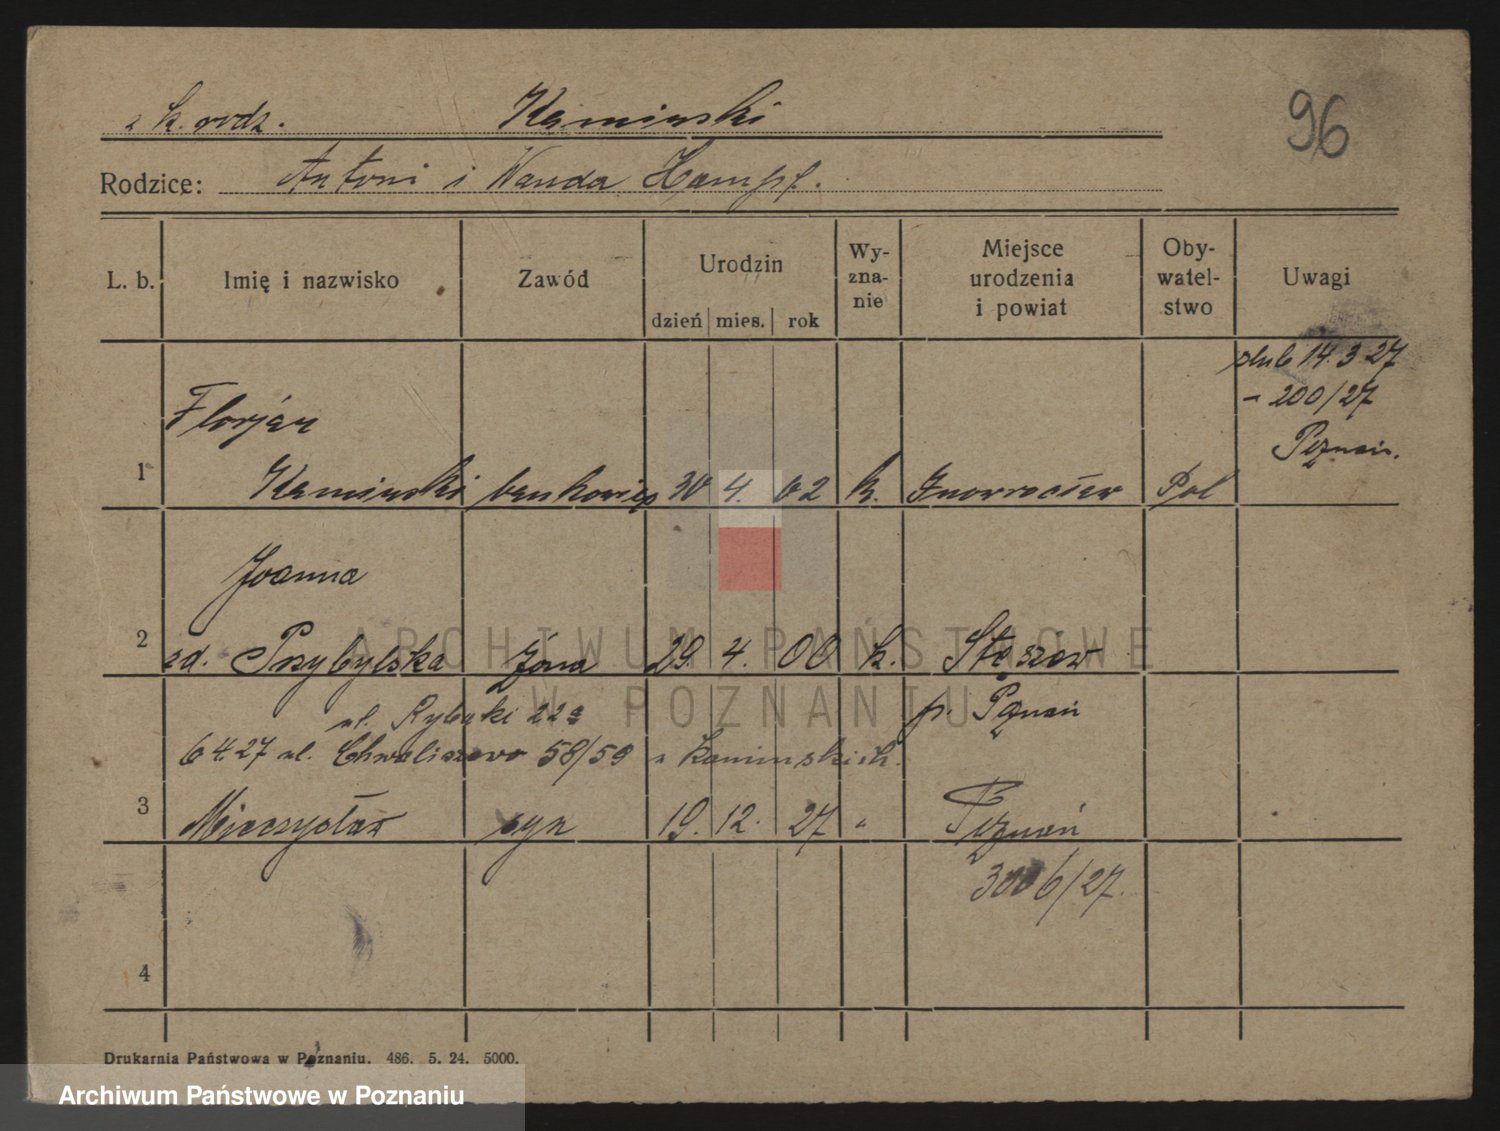 z k. rodz. Kaminski
96
Rodzice: Antoni i Wanda Kampf.
L. b. Imię i nazwisko Zawód Urodzin dzień mies. rok Wy-zna-nie Miejsce urodzenia i powiat Oby-watel-stwo Uwagi
ślub 14.3.27
- 200/27
Poznań.
Florjan
1 Kaminski bankowiec 30 4. 02 k. Inowrocław Pol
Joanna
2 zd. Przybylska żona 29. 4. 00 k. Stęszew
ul. Rybaki 22a p. Poznań
6 4 27 ul. Chwaliszewo 58/59 u Kaminskich.
3 Mieczysław syn 19. 12. 27 " Poznań
3006/27.
4
Drukarnia Państwowa w Poznaniu. 486. 5. 24. 5000.
ARCHIWUM PAŃSTWOWE
W POZNANIU
Archiwum Państwowe w Poznaniu